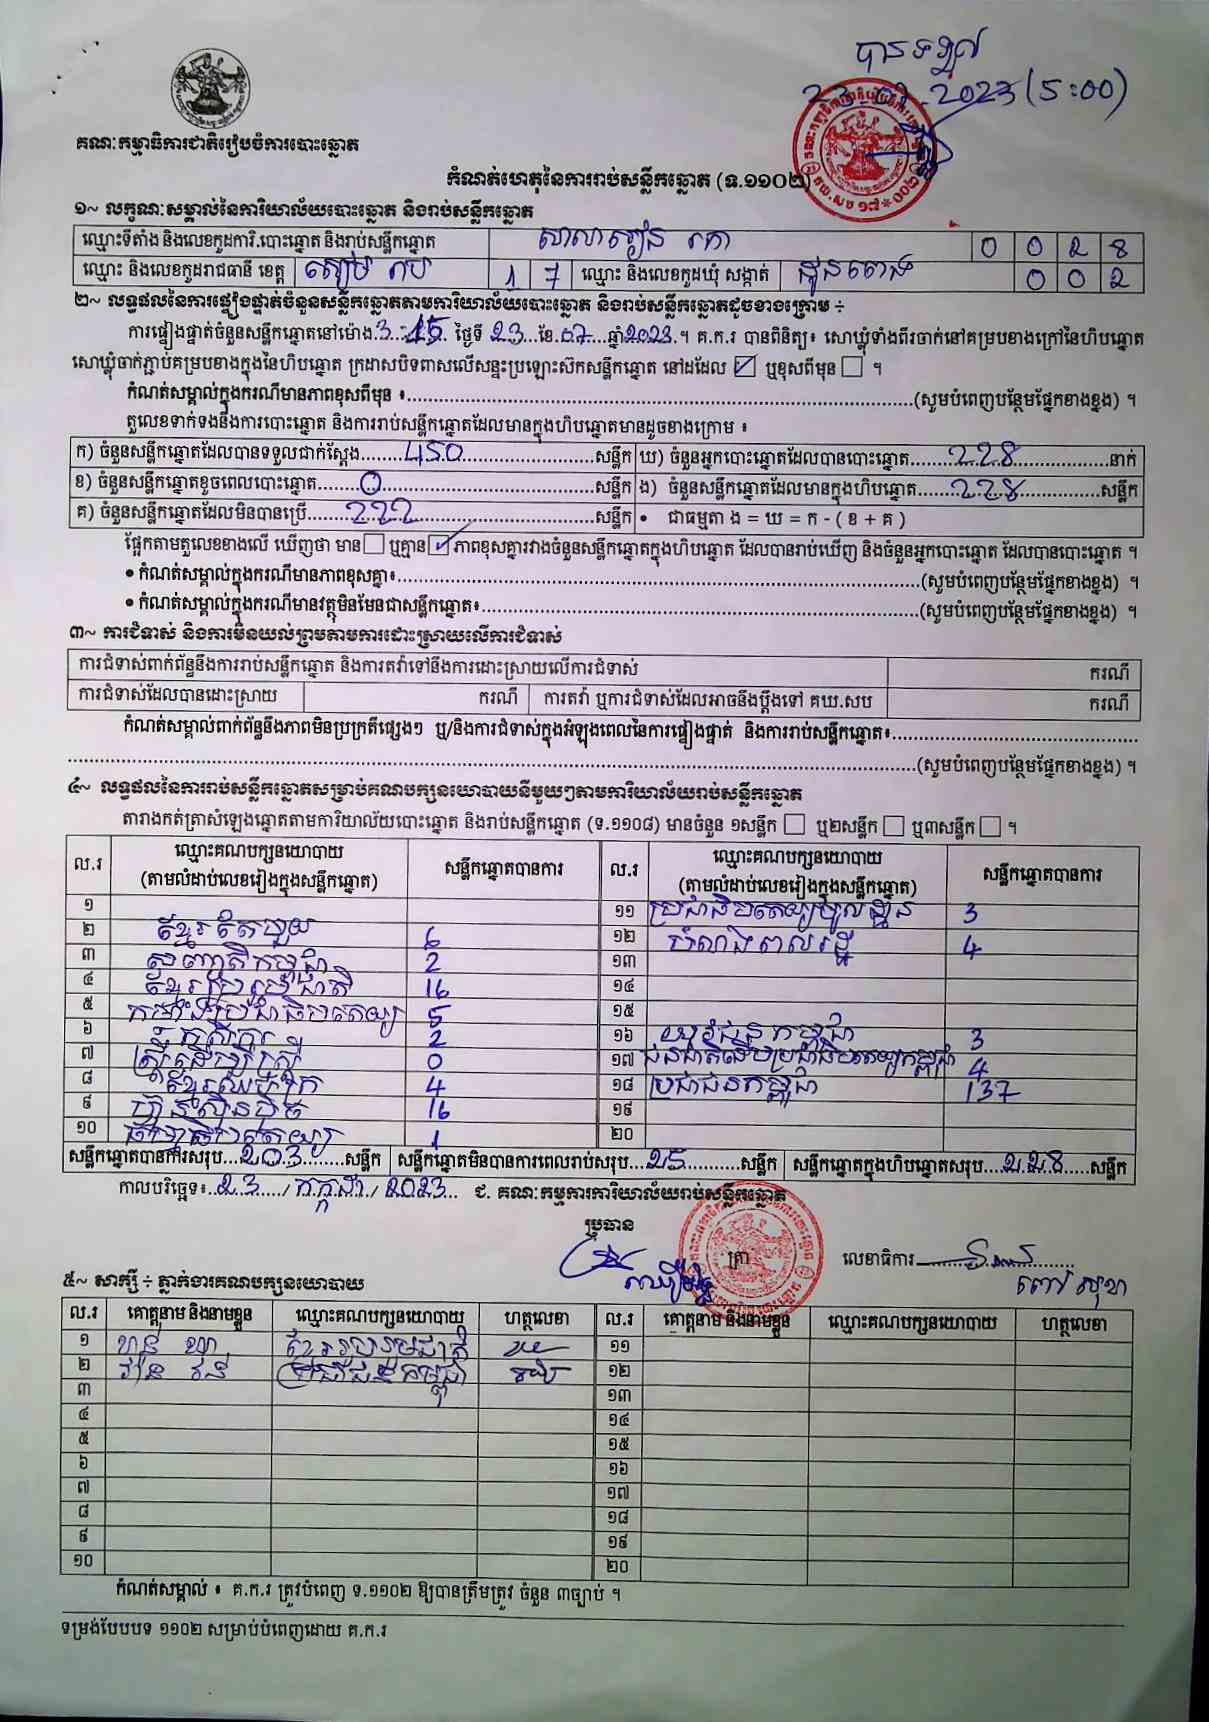 បានទទួល
23.07.2023 (5:00)
គណៈកម្មាធិការជាតិរៀបចំការបោះឆ្នោត
កំណត់ហេតុនៃការរាប់សន្លឹកឆ្នោត (ទ.១១០២)
១~ លក្ខណៈសម្គាល់នៃការិយាល័យបោះឆ្នោត និងរាប់សន្លឹកឆ្នោត
ឈ្មោះទីតាំង និងលេខកូដការិ.បោះឆ្នោត និងរាប់សន្លឹកឆ្នោត សាលារៀន រកា 0 0 2 8
ឈ្មោះ និងលេខកូដរាជធានី ខេត្ត សៀមរាប 1 7 ឈ្មោះ និងលេខកូដឃុំ សង្កាត់ ដូនពេង 0 0 2
២~ លទ្ធផលនៃការផ្ទៀងផ្ទាត់ចំនួនសន្លឹកឆ្នោតតាមការិយាល័យបោះឆ្នោត និងរាប់សន្លឹកឆ្នោតដូចខាងក្រោម ÷
ការផ្ទៀងផ្ទាត់ចំនួនសន្លឹកឆ្នោតនៅម៉ោង 3:15 ថ្ងៃទី 23 ខែ 07 ឆ្នាំ 2023 ។ គ.ក.រ បានពិនិត្យ៖ សោឃ្លុំទាំងពីរចាក់នៅគម្របខាងក្រៅនៃហិបឆ្នោត
សោឃ្លុំចាក់ភ្ជាប់គម្របខាងក្នុងនៃហិបឆ្នោត ក្រដាសបិទពាសលើសន្ទះប្រឡោះស៊កសន្លឹកឆ្នោត នៅដដែល ☑ ឬខុសពីមុន ☐ ។
កំណត់សម្គាល់ក្នុងករណីមានភាពខុសពីមុន ៖........(សូមបំពេញបន្ថែមផ្នែកខាងខ្នង) ។
តួលេខទាក់ទងនឹងការបោះឆ្នោត និងការរាប់សន្លឹកឆ្នោតដែលមានក្នុងហិបឆ្នោតមានដូចខាងក្រោម ៖
ក) ចំនួនសន្លឹកឆ្នោតដែលបានទទួលជាក់ស្តែង 450 សន្លឹក ឃ) ចំនួនអ្នកបោះឆ្នោតដែលបានបោះឆ្នោត 228 នាក់
ខ) ចំនួនសន្លឹកឆ្នោតខូចពេលបោះឆ្នោត 0 សន្លឹក ង) ចំនួនសន្លឹកឆ្នោតដែលមានក្នុងហិបឆ្នោត 228 សន្លឹក
គ) ចំនួនសន្លឹកឆ្នោតដែលមិនបានប្រើ 222 សន្លឹក • ជាធម្មតា ង = ឃ = ក - ( ខ + គ )
ផ្អែកតាមតួលេខខាងលើ ឃើញថា មាន ☐ ឬគ្មាន ☑ ភាពខុសគ្នារវាងចំនួនសន្លឹកឆ្នោតក្នុងហិបឆ្នោត ដែលបានរាប់ឃើញ និងចំនួនអ្នកបោះឆ្នោត ដែលបានបោះឆ្នោត ។
• កំណត់សម្គាល់ក្នុងករណីមានភាពខុសគ្នា៖........(សូមបំពេញបន្ថែមផ្នែកខាងខ្នង) ។
• កំណត់សម្គាល់ក្នុងករណីមានវត្ថុមិនមែនជាសន្លឹកឆ្នោត៖........(សូមបំពេញបន្ថែមផ្នែកខាងខ្នង) ។
៣~ ការជំទាស់ និងការមិនយល់ព្រមតាមការដោះស្រាយលើការជំទាស់
ការជំទាស់ពាក់ព័ន្ធនឹងការរាប់សន្លឹកឆ្នោត និងការតវ៉ាទៅនឹងការដោះស្រាយលើការជំទាស់ ករណី
ការជំទាស់ដែលបានដោះស្រាយ ករណី ការតវ៉ា ឬការជំទាស់ដែលអាចនឹងប្តឹងទៅ គឃ.សប ករណី
កំណត់សម្គាល់ពាក់ព័ន្ធនឹងភាពមិនប្រក្រតីផ្សេងៗ ឬ/និងការជំទាស់ក្នុងអំឡុងពេលនៃការផ្ទៀងផ្ទាត់ និងការរាប់សន្លឹកឆ្នោត៖........
........(សូមបំពេញបន្ថែមផ្នែកខាងខ្នង) ។
៤~ លទ្ធផលនៃការរាប់សន្លឹកឆ្នោតសម្រាប់គណបក្សនយោបាយនីមួយៗតាមការិយាល័យរាប់សន្លឹកឆ្នោត
តារាងកត់ត្រាសំឡេងឆ្នោតតាមការិយាល័យបោះឆ្នោត និងរាប់សន្លឹកឆ្នោត (ទ.១១០៨) មានចំនួន ១សន្លឹក ☐ ឬ២សន្លឹក ☐ ឬ៣សន្លឹក ☐ ។
ល.រ ឈ្មោះគណបក្សនយោបាយ (តាមលំដាប់លេខរៀងក្នុងសន្លឹកឆ្នោត) សន្លឹកឆ្នោតបានការ ល.រ ឈ្មោះគណបក្សនយោបាយ (តាមលំដាប់លេខរៀងក្នុងសន្លឹកឆ្នោត) សន្លឹកឆ្នោតបានការ
១ ១១ ប្រជាធិបតេយ្យមូលដ្ឋាន 3
២ ខ្មែរតែមួយ 6 ១២ កំលាំងពលរដ្ឋ 4
៣ សញ្ជាតិកម្ពុជា 2 ១៣
៤ ខ្មែររួបរួមជាតិ 16 ១៤
៥ កម្លាំងប្រជាធិបតេយ្យ 5 ១៥
៦ កសិករ 2 ១៦ យុវជនកម្ពុជា 3
៧ ស្ត្រីដើម្បីស្ត្រី 0 ១៧ ជនជាតិដើមប្រជាធិបតេយ្យកម្ពុជា 4
៨ ខ្មែរឈប់ក្រ 4 ១៨ ប្រជាជនកម្ពុជា 137
៩ ហ៊្វុនស៊ិនប៉ិច 16 ១៩
១០ ធម្មាធិបតេយ្យ 1 ២០
សន្លឹកឆ្នោតបានការសរុប 203 សន្លឹក សន្លឹកឆ្នោតមិនបានការពេលរាប់សរុប 25 សន្លឹក សន្លឹកឆ្នោតក្នុងហិបឆ្នោតសរុប 228 សន្លឹក
កាលបរិច្ឆេទ៖ 23 / កក្កដា / 2023 ជ. គណៈកម្មការការិយាល័យរាប់សន្លឹកឆ្នោត
ប្រធាន
ត្រា លេខាធិការ
ពៅ សុខា
៥~ សាក្សី ÷ ភ្នាក់ងារគណបក្សនយោបាយ
ល.រ គោត្តនាម និងនាមខ្លួន ឈ្មោះគណបក្សនយោបាយ ហត្ថលេខា ល.រ គោត្តនាម និងនាមខ្លួន ឈ្មោះគណបក្សនយោបាយ ហត្ថលេខា
១ ខ្មែររួបរួមជាតិ ១១
២ ប្រជាជនកម្ពុជា ១២
៣ ១៣
៤ ១៤
៥ ១៥
៦ ១៦
៧ ១៧
៨ ១៨
៩ ១៩
១០ ២០
កំណត់សម្គាល់ ៖ គ.ក.រ ត្រូវបំពេញ ទ.១១០២ ឱ្យបានត្រឹមត្រូវ ចំនួន ៣ច្បាប់ ។
ទម្រង់បែបបទ ១១០២ សម្រាប់បំពេញដោយ គ.ក.រ